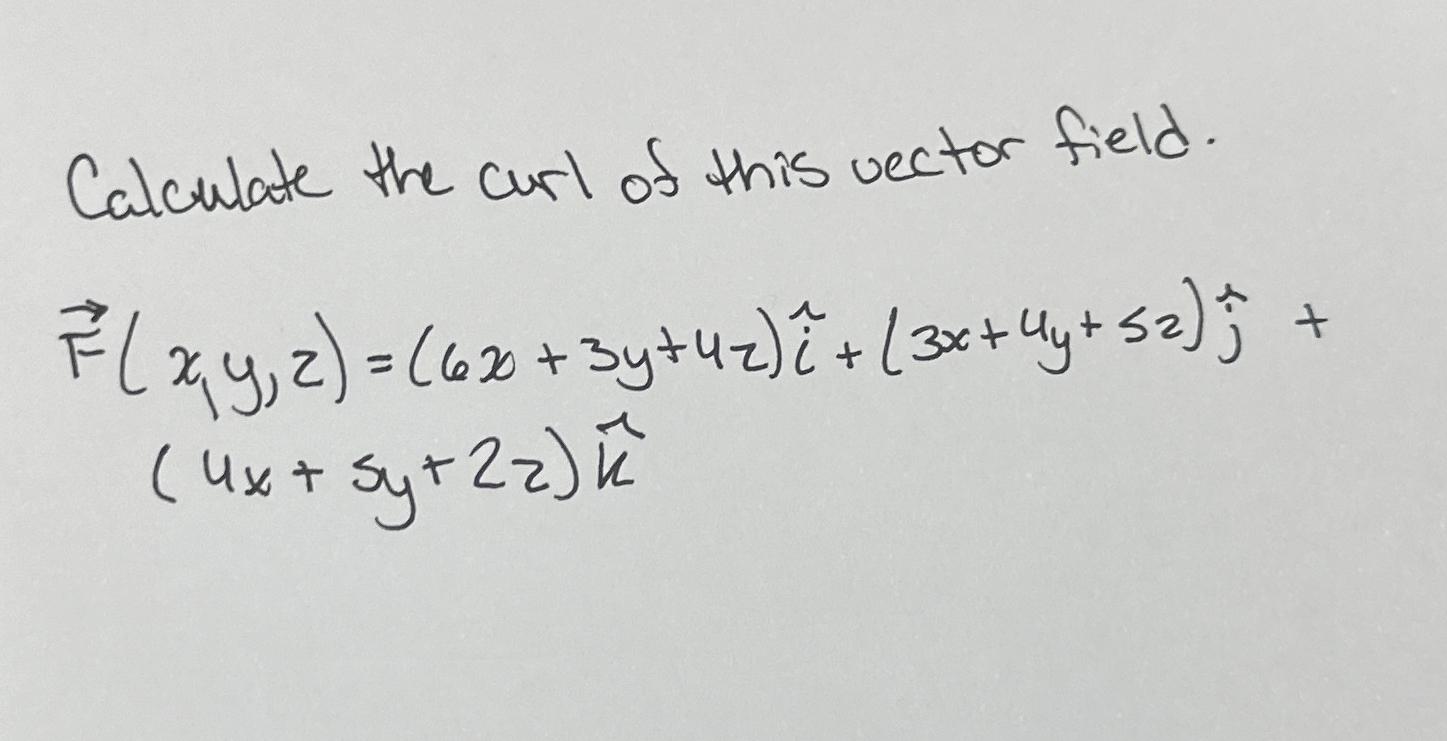 Calculate the curl of this vector field.
F⃗(x,y,z)=(6x+3y+4z)î+(3x+4y+5z)ĵ +
(4x+5y+2z)k̂